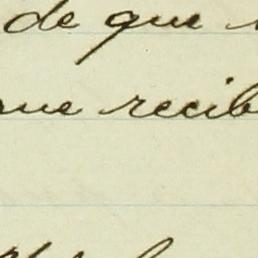 de que
que recib